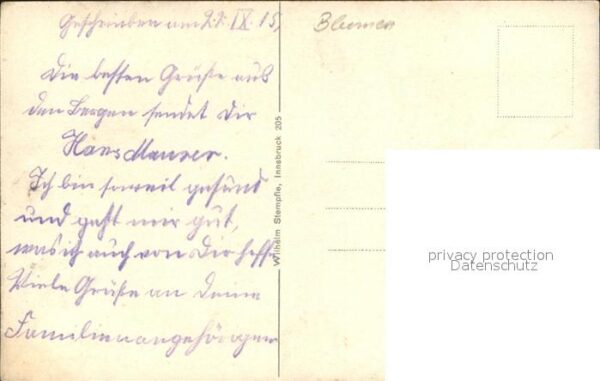 Geschrieben am 22. IX. 15,
Die besten Grüße aus
den Bergen sendet Dir
Hans Mauser.
Ich bin soweil gesund
und geht mir gut,
was ich auch von Dir hoffe
Viele Grüße an Deine
Familienangehörigen
Wilhelm Stempfle, Innsbruck 205
Blumen
privacy protection
Datenschutz